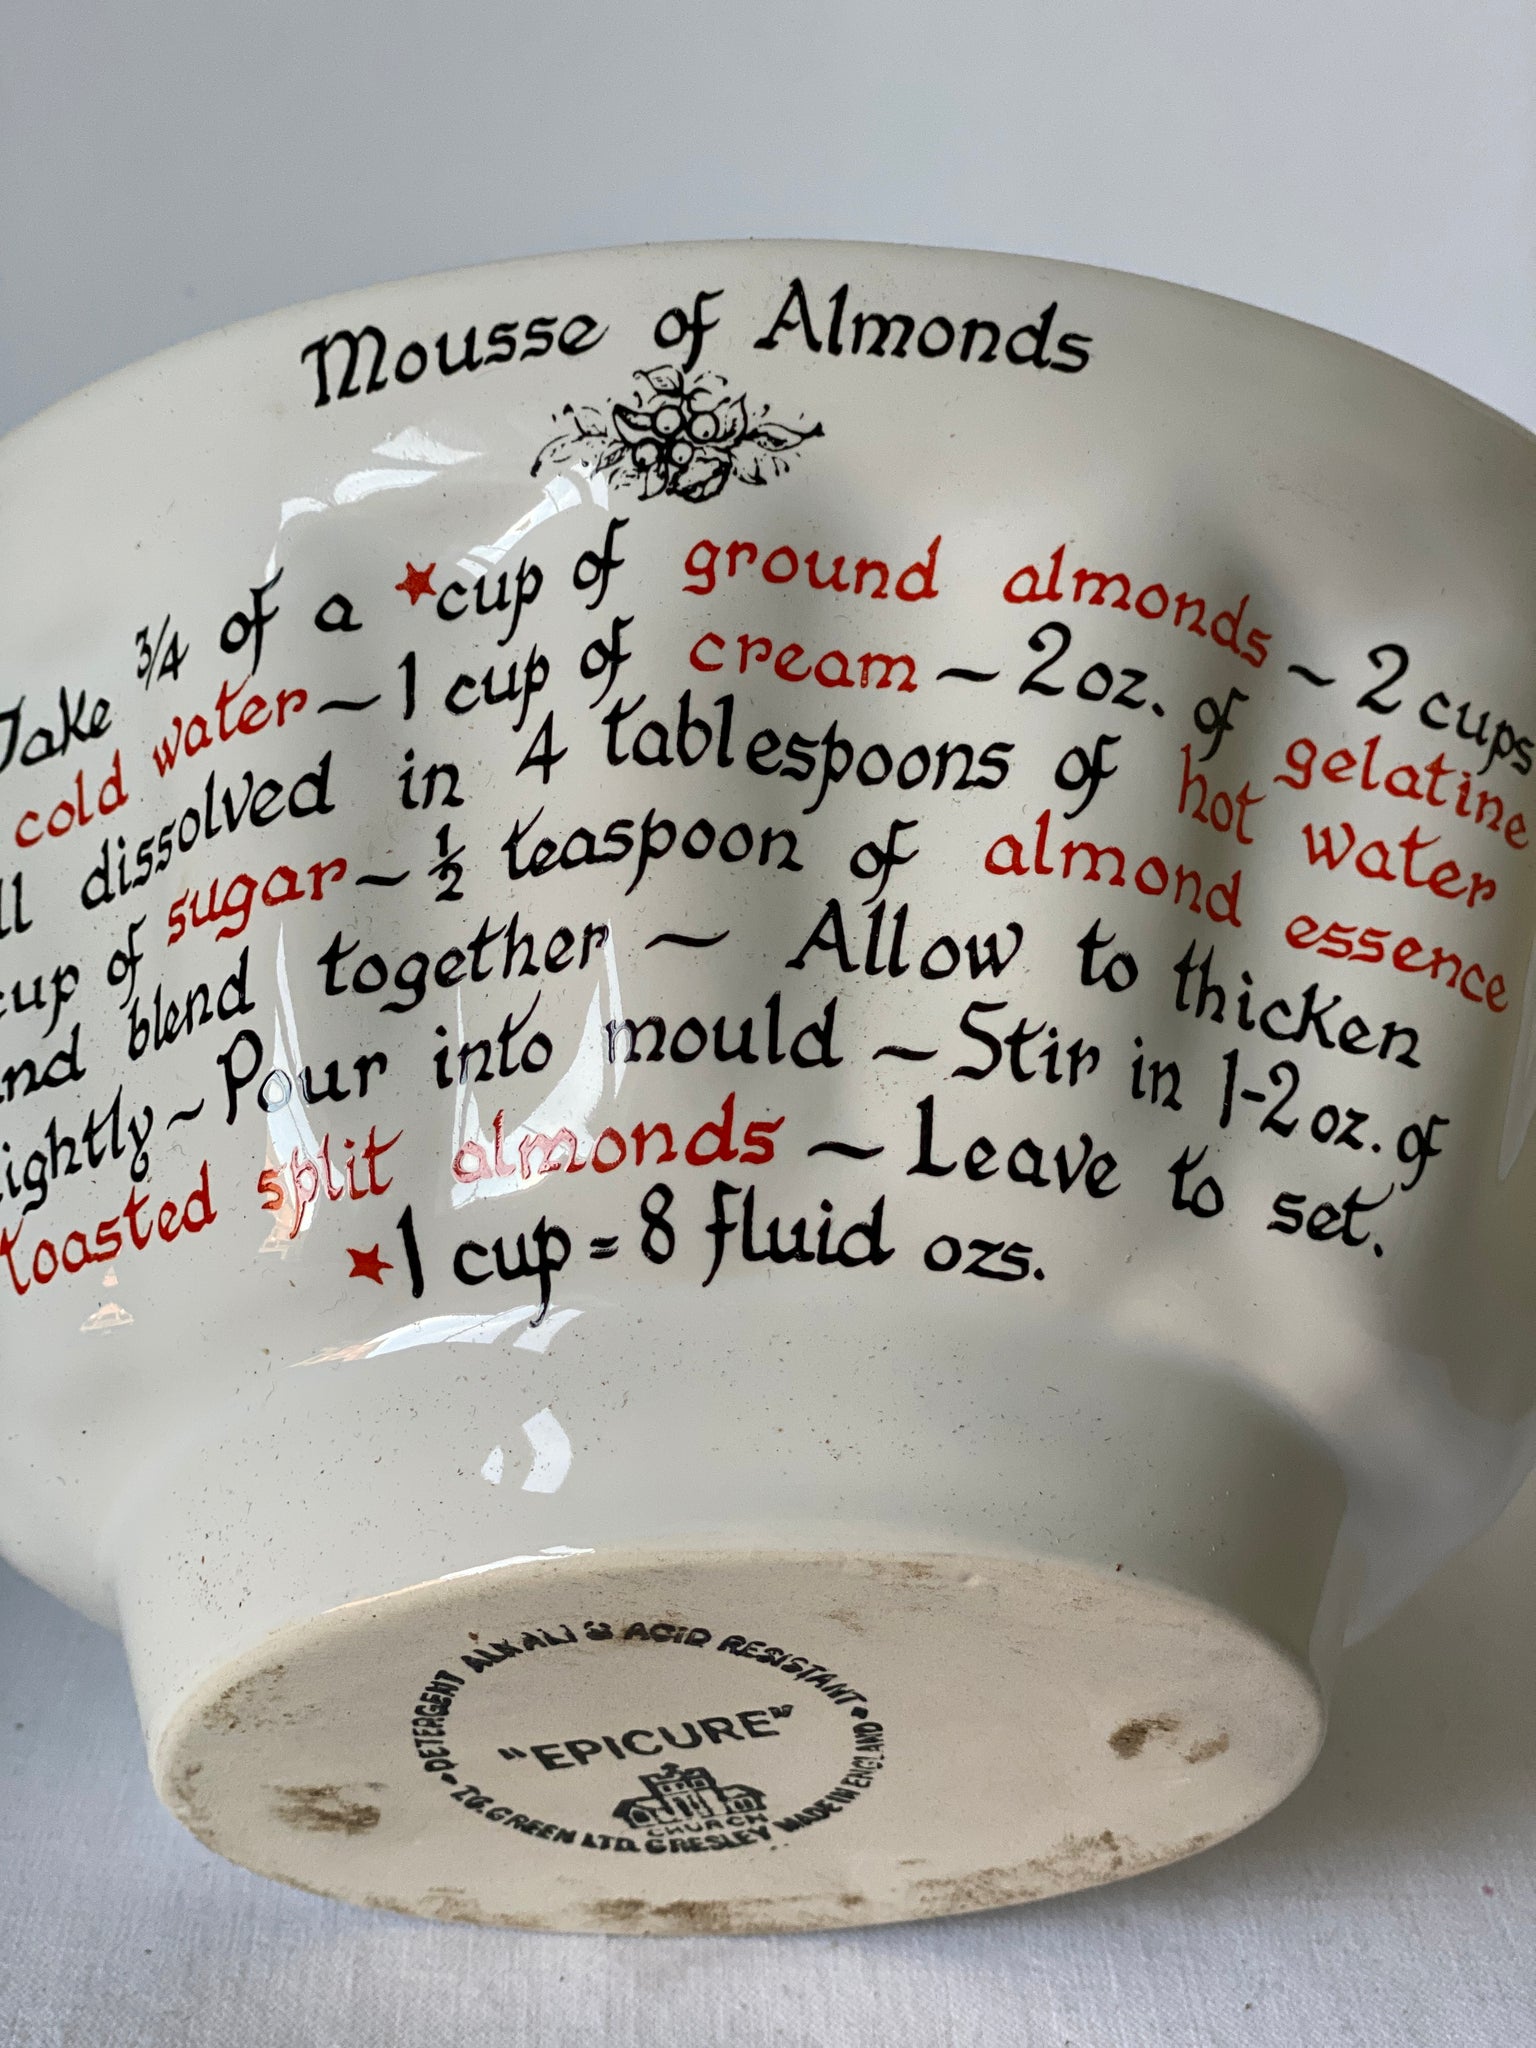 Mousse of Almonds
Take 3/4 of a ★cup of ground almonds ~ 2 cups
cold water ~ 1 cup of cream ~ 2 oz. of gelatine
ll dissolved in 4 tablespoons of hot water
cup of sugar ~ ½ teaspoon of almond essence
nd blend together ~ Allow to thicken
lightly ~ Pour into mould ~ Stir in 1-2 oz. of
toasted split almonds ~ Leave to set.
★1 cup = 8 fluid ozs.
DETERGENT ALKALI & ACID RESISTANT
"EPICURE"
CHURCH
T.G. GREEN LTD. GRESLEY MADE IN ENGLAND